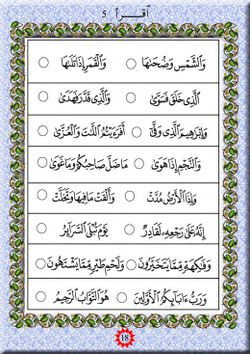 أقرأ 5
وَالشَّمْسِ وَضُحَىٰهَا ○ وَالْقَمَرِ إِذَا تَلَىٰهَا ○
الَّذِى خَلَقَ فَسَوَّىٰ ○ وَالَّذِى قَدَّرَ فَهَدَىٰ ○
وَإِبْرَٰهِيمَ الَّذِى وَفَّىٰ ○ أَفَرَءَيْتُمُ اللَّٰتَ وَالْعُزَّىٰ ○
وَالنَّجْمِ إِذَا هَوَىٰ ○ مَا ضَلَّ صَاحِبُكُمْ وَمَا غَوَىٰ ○
وَإِذَا الْأَرْضُ مُدَّتْ ○ وَأَلْقَتْ مَا فِيهَا وَتَخَلَّتْ ○
إِنَّهُۥ عَلَىٰ رَجْعِهِۦ لَقَادِرٌ ○ يَوْمَ تُبْلَى السَّرَآئِرُ ○
وَفَٰكِهَةٍ مِّمَّا يَتَخَيَّرُونَ ○ وَلَحْمِ طَيْرٍ مِّمَّا يَشْتَهُونَ ○
وَرَبُّ ءَابَآئِكُمُ الْأَوَّلِينَ ○ هُوَ التَّوَّابُ الرَّحِيمُ ○
18